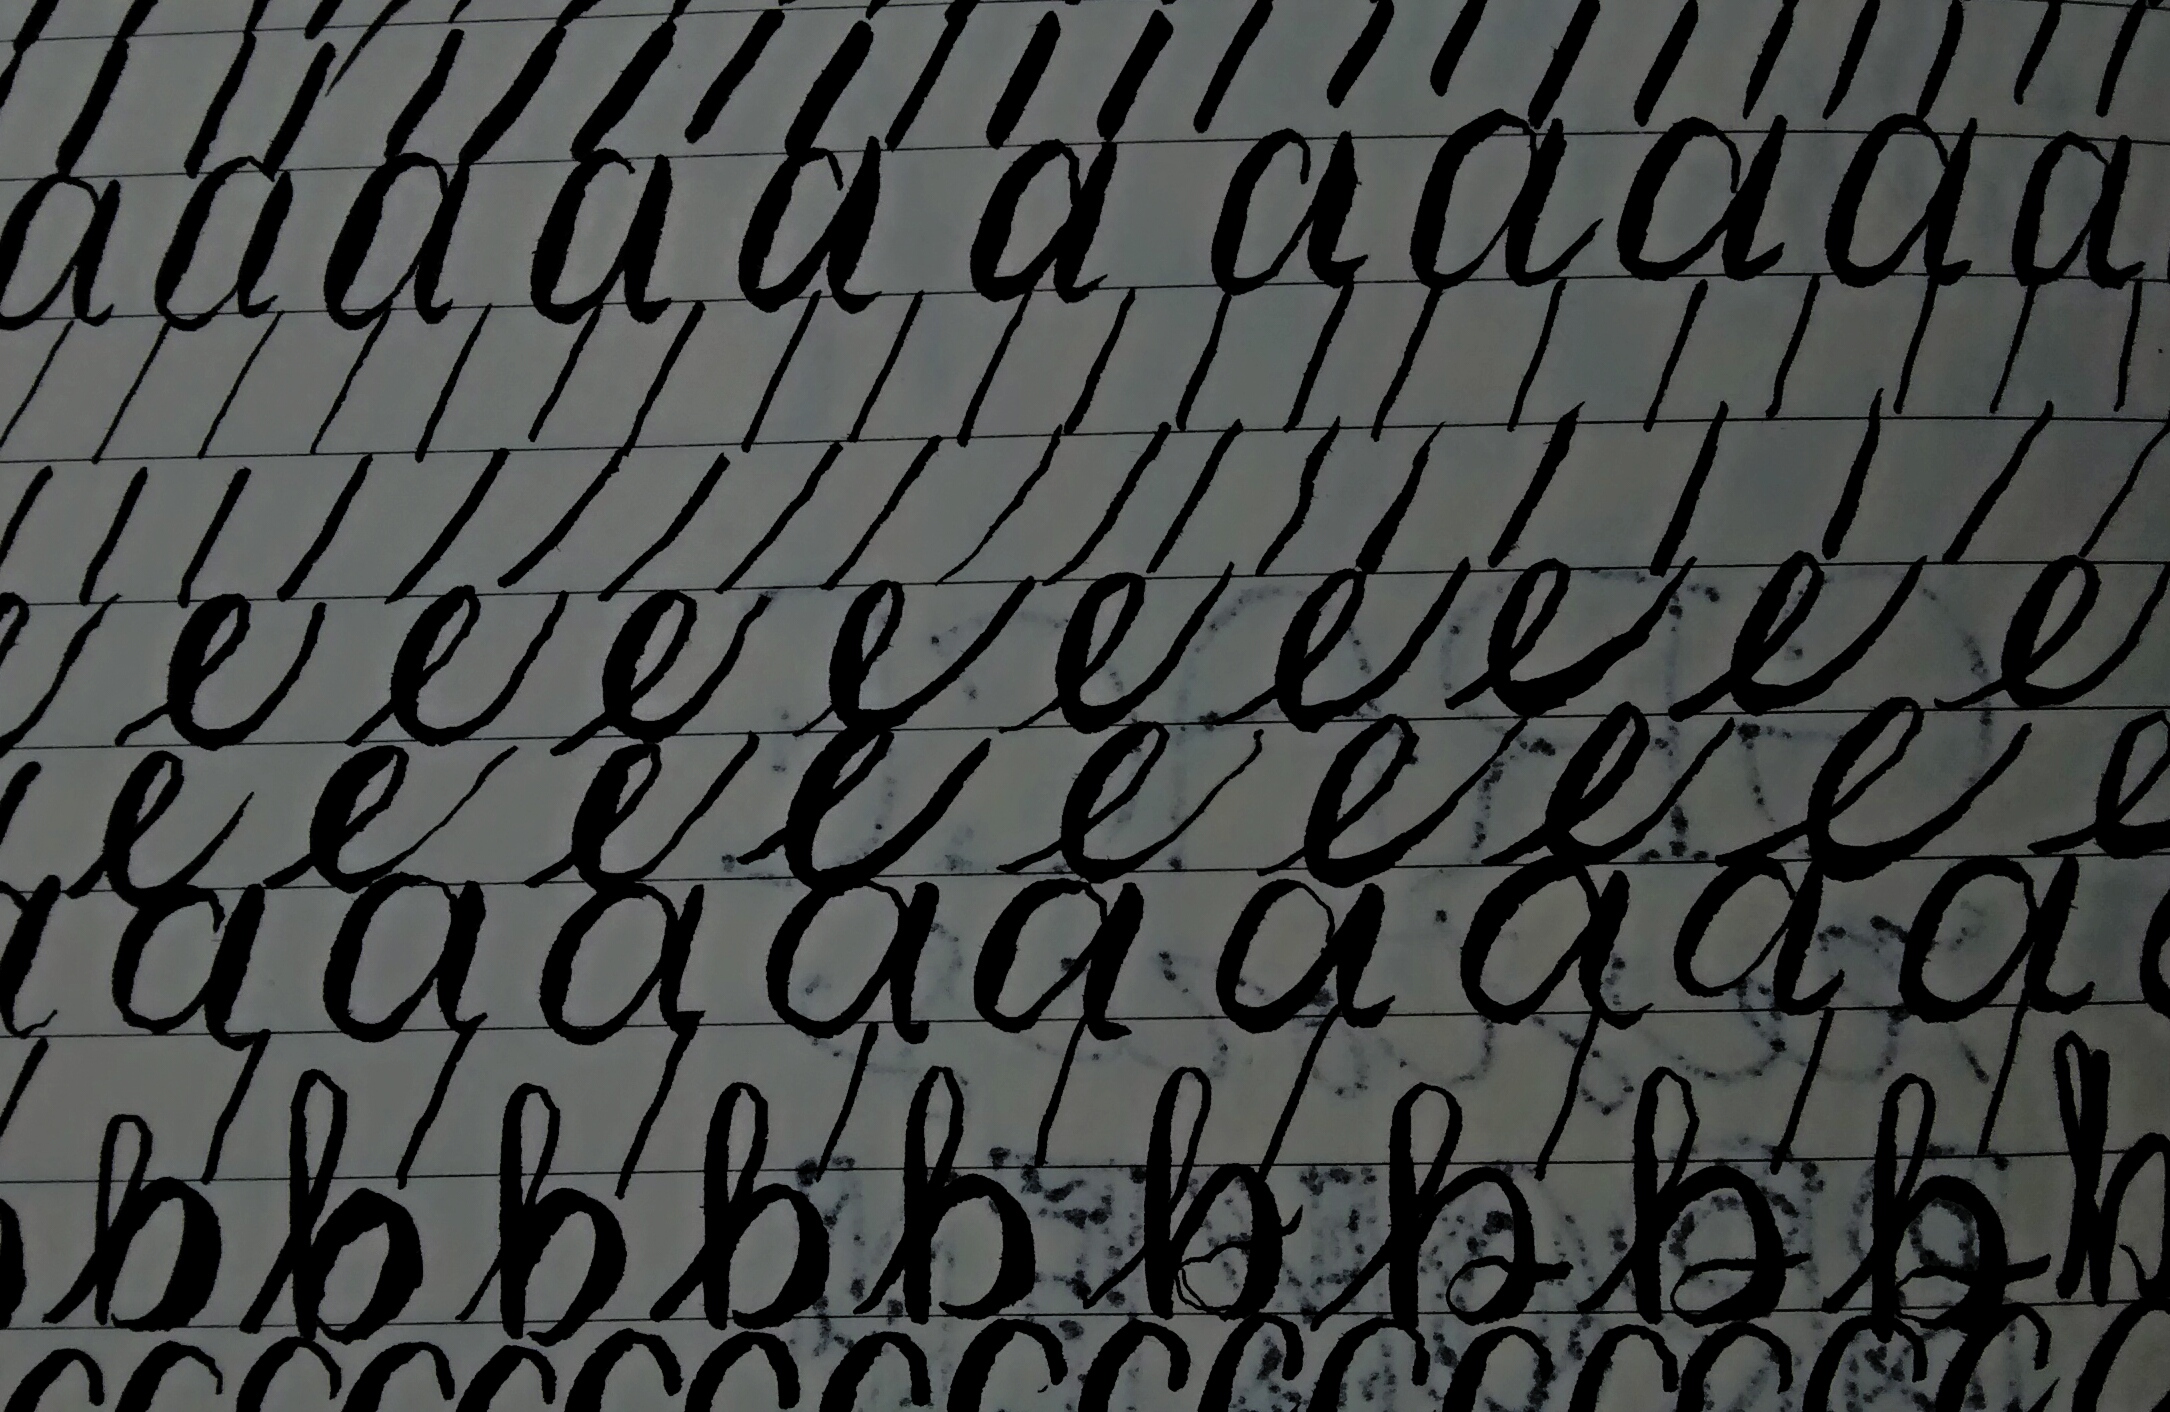 a a a a a a a a a a a
e e e e e e e e e
e e e e e e e e e
a a a a a a a a a a
b b b b b b b b b b
c c c c c c c c c c c c c c c c c c